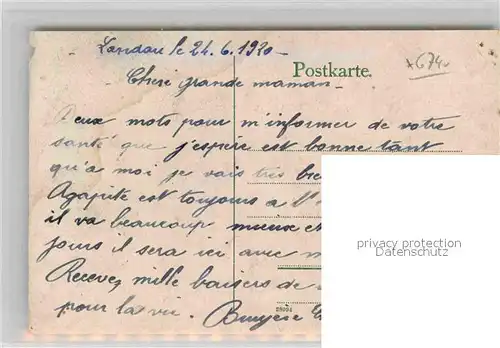 Landau le 24.6.1920
Postkarte.
Cheré grande maman
Deux mots pour m'informer de votre
santé que j'espère est bonne tant
qu'a moi je vais très
Agapite est toujours a
il va beaucoup mieux et
jours il sera ici avec
Recevez mille baisers de
pour la vie. Bruyère
privacy protection
Datenschutz